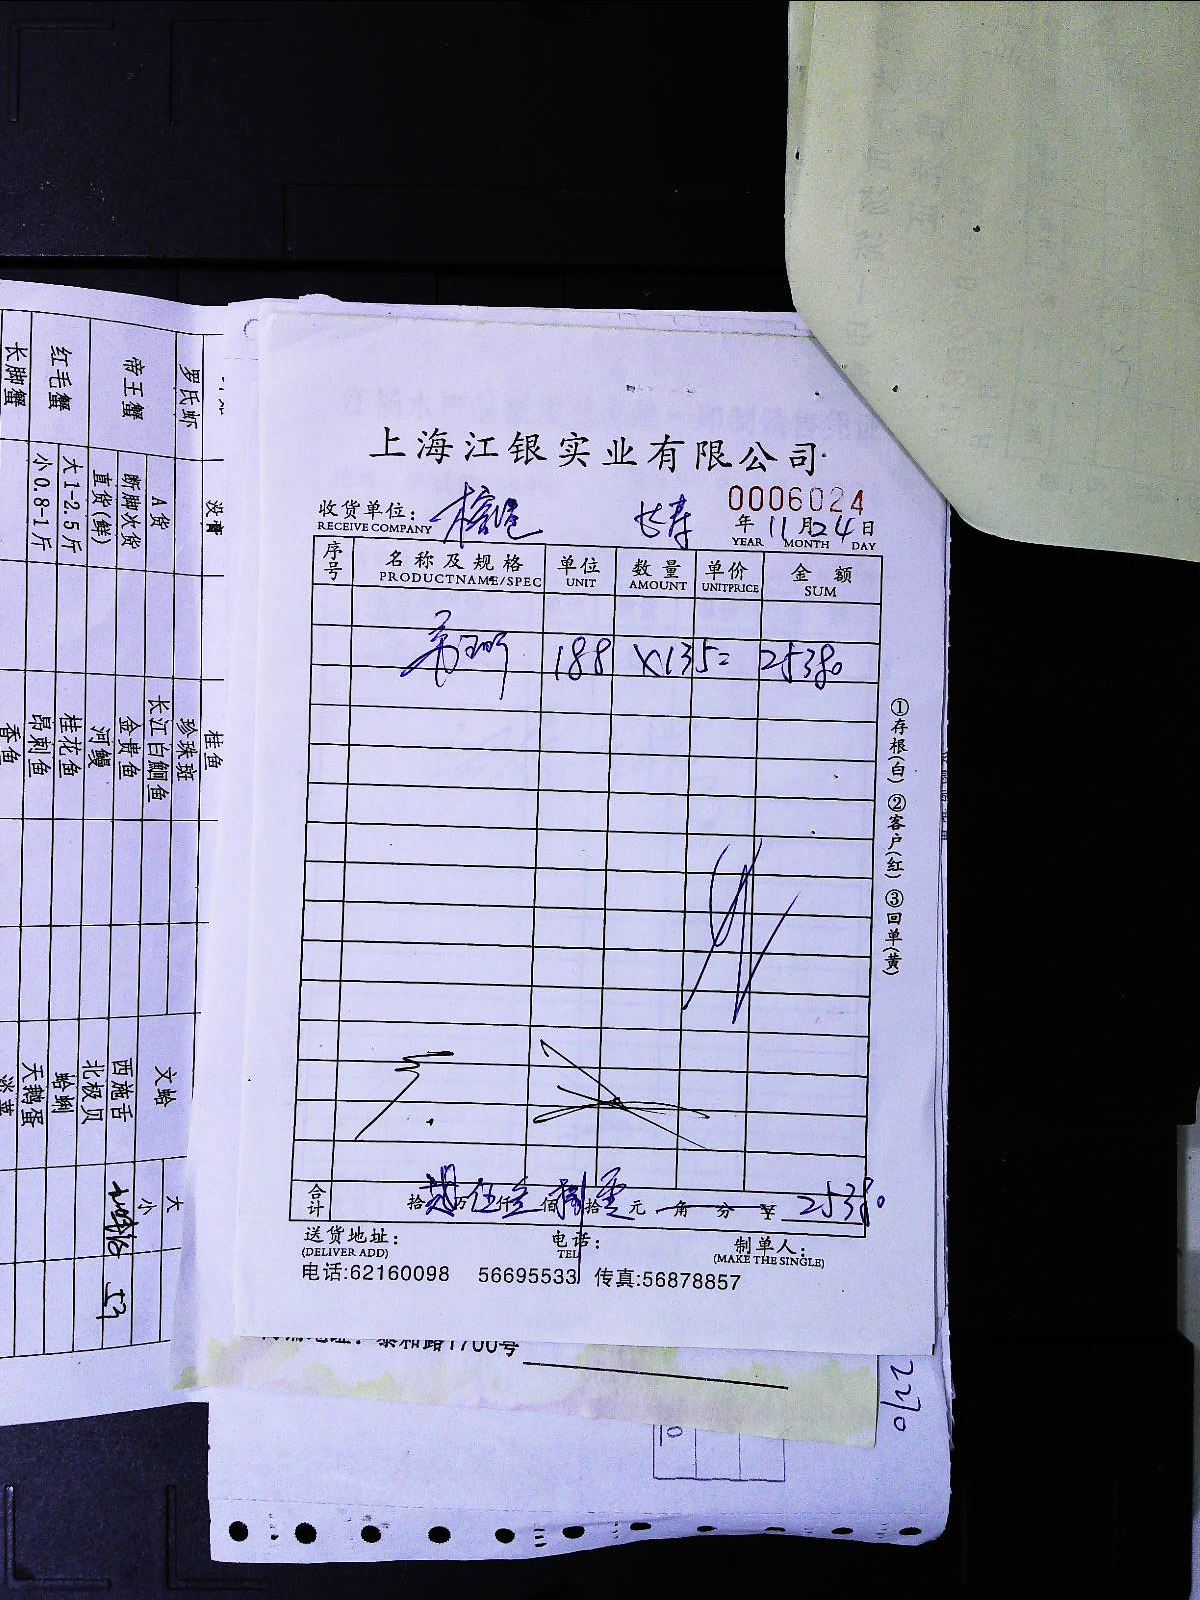 上海江银实业有限公司
0006024
收货单位: 长寿 年 11 月 24 日
RECEIVE COMPANY YEAR MONTH DAY
序号 名称及规格 单位 数量 单价 金额
PRODUCTNAME/SPEC UNIT AMOUNT UNITPRICE SUM
188 X135= 25380
①存根(白) ②客户(红) ③回单(黄)
合计 拾 贰 万 伍 仟 叁 佰 捌 拾 零 元 角 分 ¥ 25380
送货地址: 电话: 制单人:
(DELIVER ADD) TEL (MAKE THE SINGLE)
电话:62160098 56695533 传真:56878857
泰和路1700号
2210
罗氏虾
帝王蟹 A货
断脚次货
直货(鲜)
红毛蟹 大1-2.5斤
小0.8-1斤
长脚蟹
桂鱼
珍珠斑
长江白鮰鱼
金贵鱼
河鳗
桂花鱼
昂刺鱼
香鱼
文蛤 大
小
西施舌
北极贝
蛤蜊
天鹅蛋
53